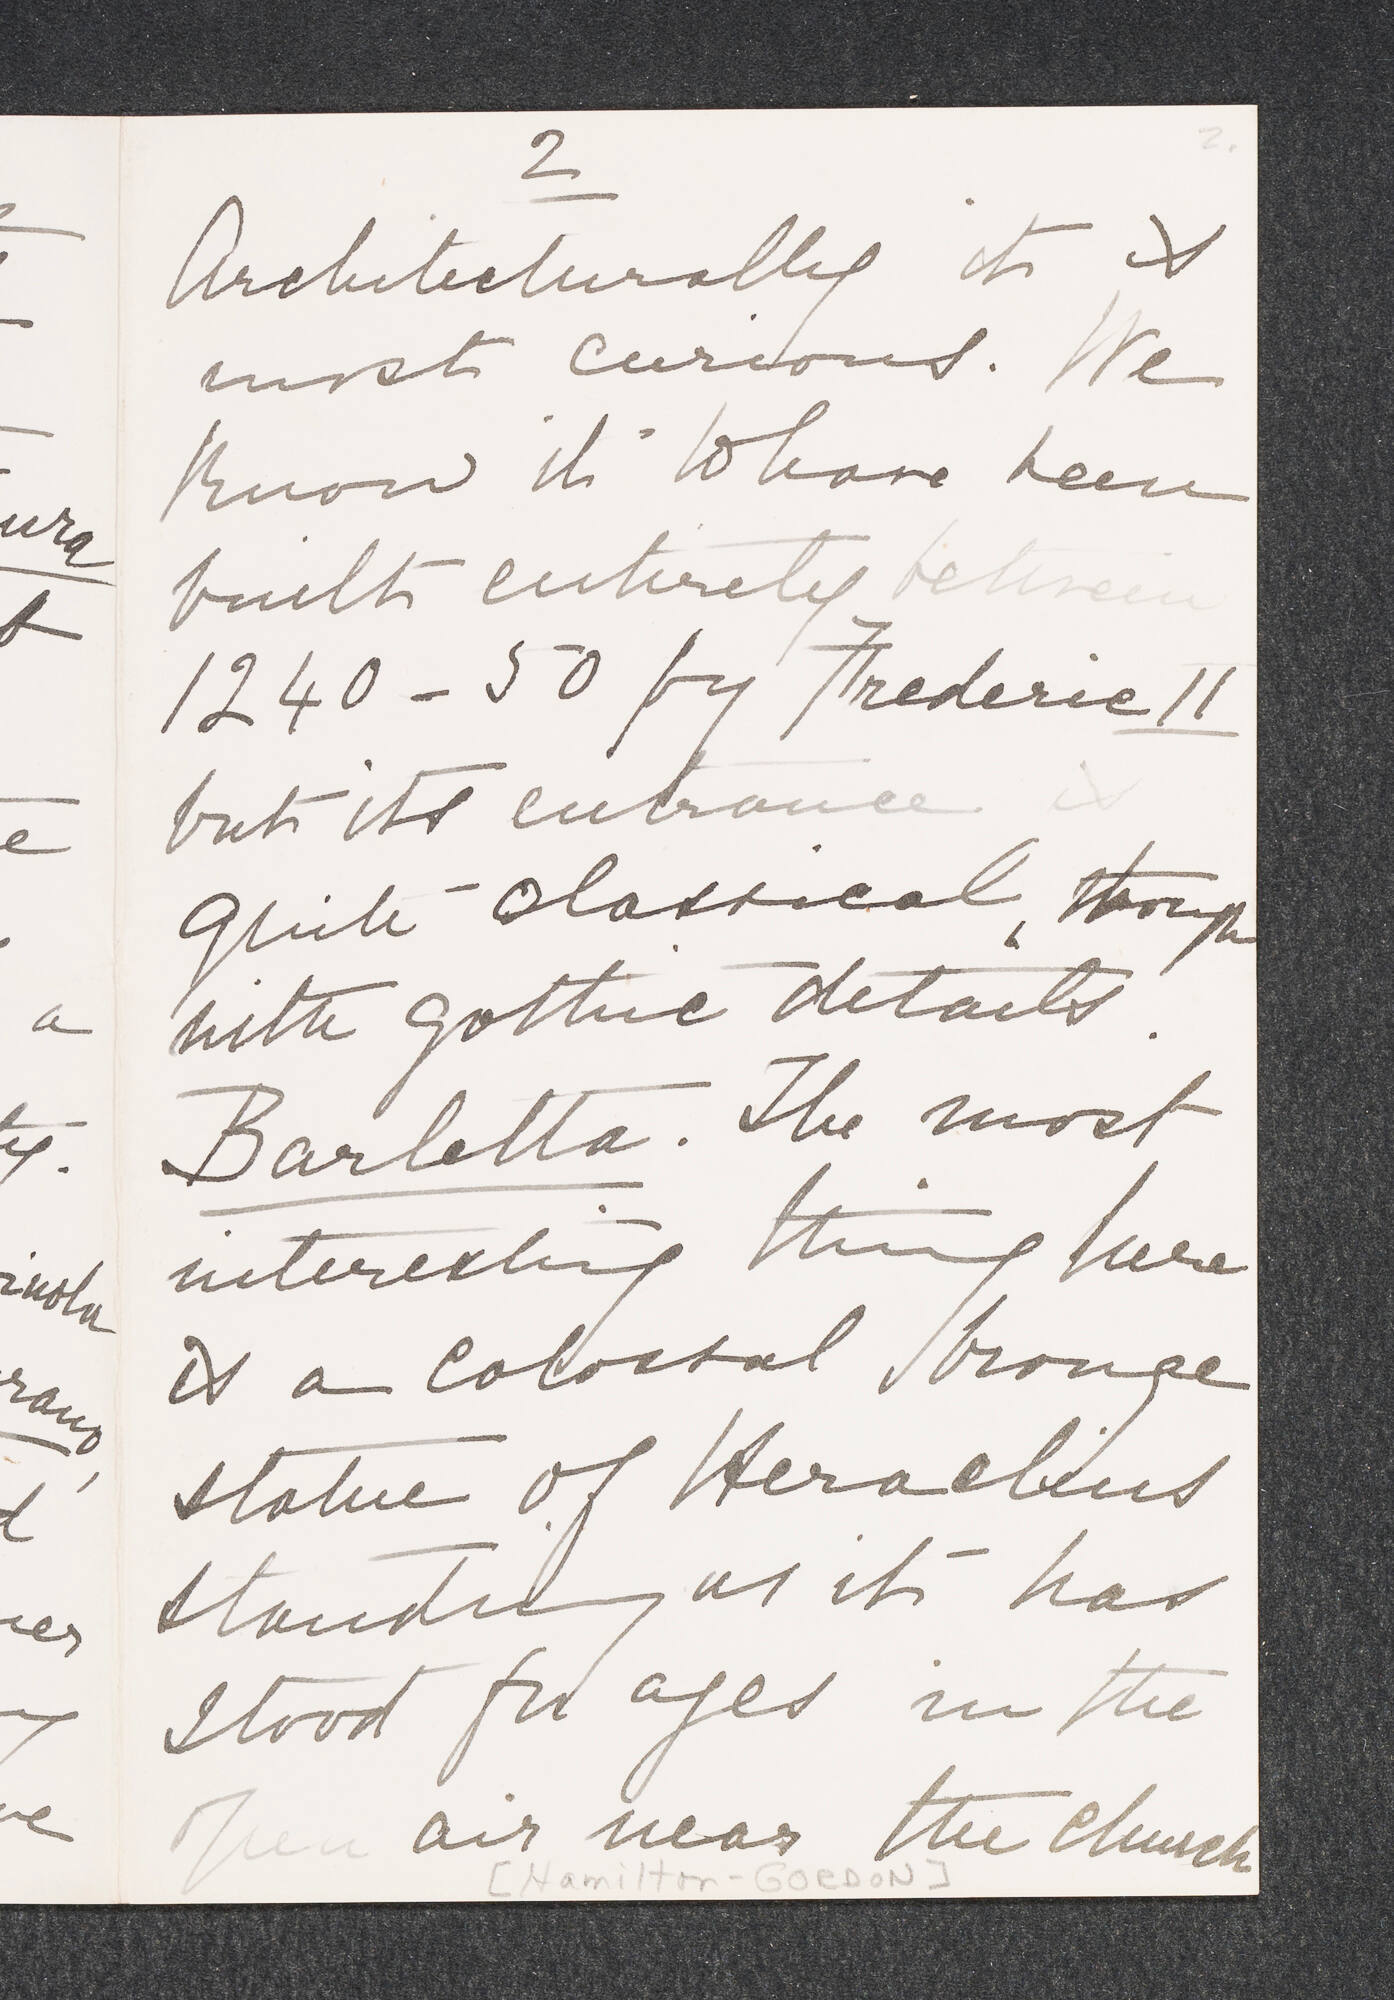 2
2.
Architecturally it is
most curious. We
know it to have been
built entirely between
1240-50 by Frederic II
but its entrance is
quite classical, though
with gothic details.
Barletta. The most
interesting thing here
is a colossal bronze
statue of Heraclius
standing as it has
stood for ages in the
open air near the church
[Hamilton-GORDON]